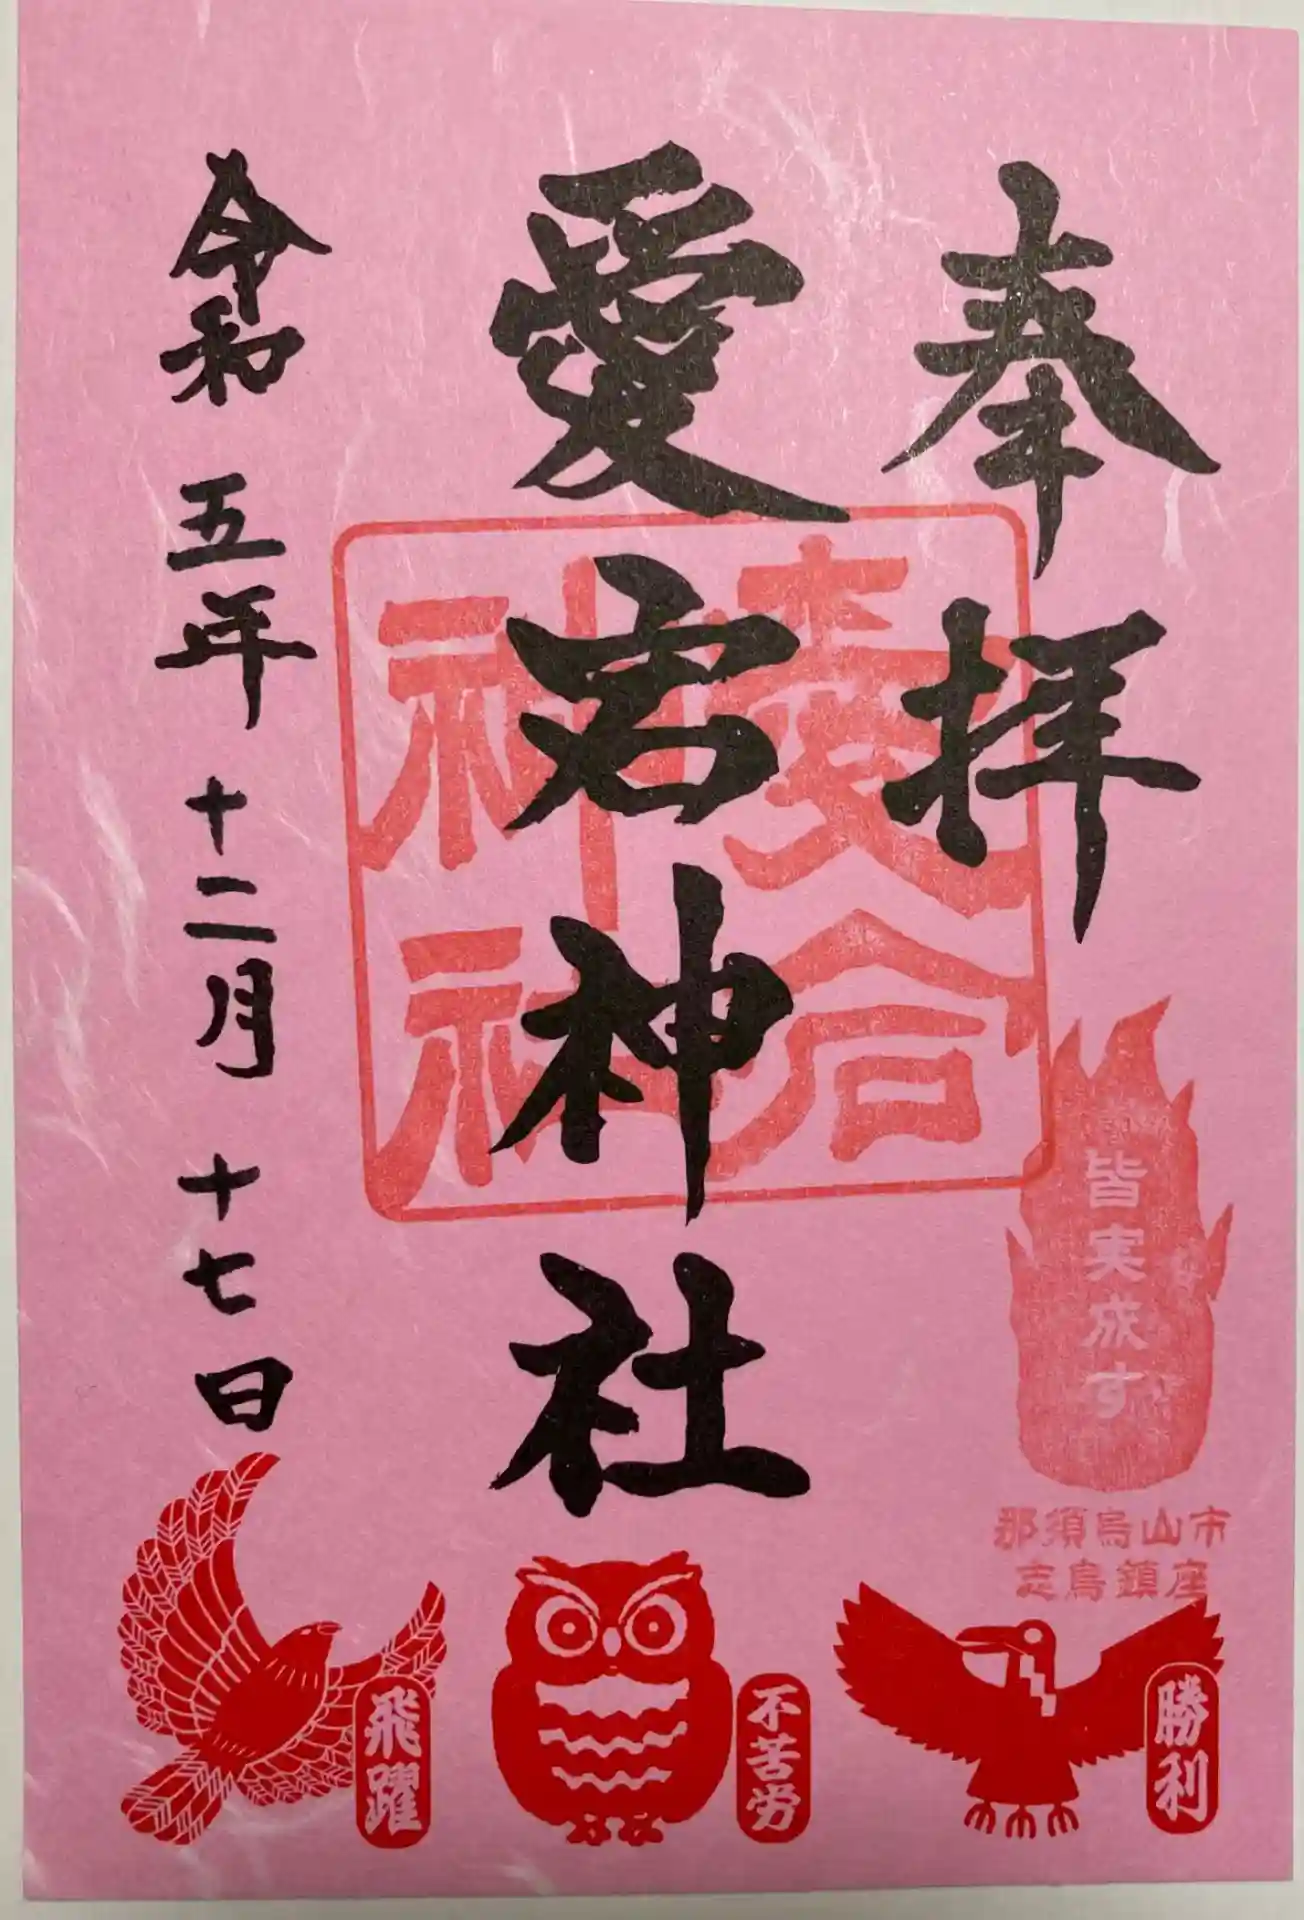 奉拝
皆実成す
那須烏山市
志鳥鎮座
愛宕神社
愛宕
神社
令和 五年 十二月 十七日
飛躍
不苦労
勝利